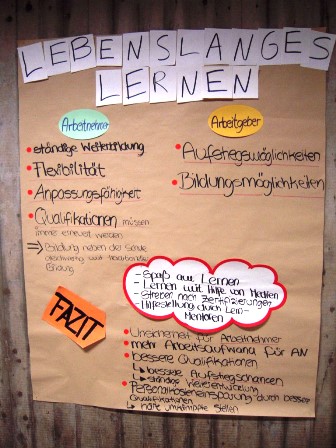 LEBENSLANGES
LERNEN
Arbeitnehmer
• ständige Weiterbildung
• Flexibilität
• Anpassungsfähigkeit
• Qualifikationen müssen
immer erneuert werden
⇒ Bildung neben der Schule
gleichwertig mit
Bildung
Arbeitgeber
• Aufstiegsmöglichkeiten
• Bildungsmöglichkeiten
- Spaß am Lernen
- Lernen mit Hilfe von Medien
- Streben nach Zertifizierungen
- Hilfestellung durch Lern-
Mentoren
FAZIT
• Unsicherheit für Arbeitnehmer
• mehr Arbeitsaufwand für AN
• bessere Qualifikationen
↳ bessere Aufstiegschancen
↳ ständige Weiterentwicklung
• Personalkosteneinsparung durch bessere
Qualifikationen
↳ Stellen